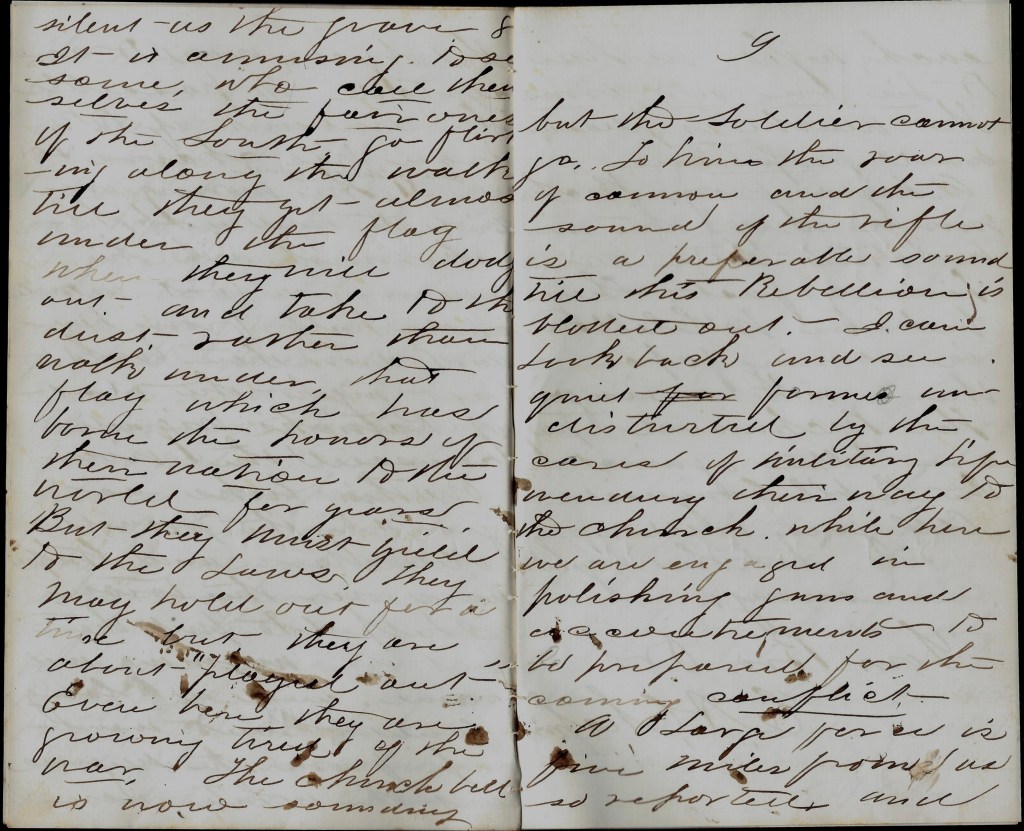 silent as the grave &
It is amusing to se
some, who call them
selves the fair ones
of the South go flirt
-ing along the walk
till they get almos
under the flag
when they will dodg
out and take to th
dust rather than
walk under that
flag which has
borne the honors of
their nation to the
world for years.
But they must yield
to the Laws. They
may hold out for a
time but they are
about "played out"
Even here they are
growing tired of the
war. The church bell
is now sounding
9
but the Soldier cannot
go. To him the roar
of cannon and the
sound of the rifle
is a preferable sound
till this Rebellion is
blotted out. I can
look back and see
quiet for farmes un
disturbed by the
cares of military life
wending their way to
the church. while here
we are engaged in
polishing guns and
accoutrements to
be prepared for the
coming conflict.
A Large force is
five miles from us
so reported and